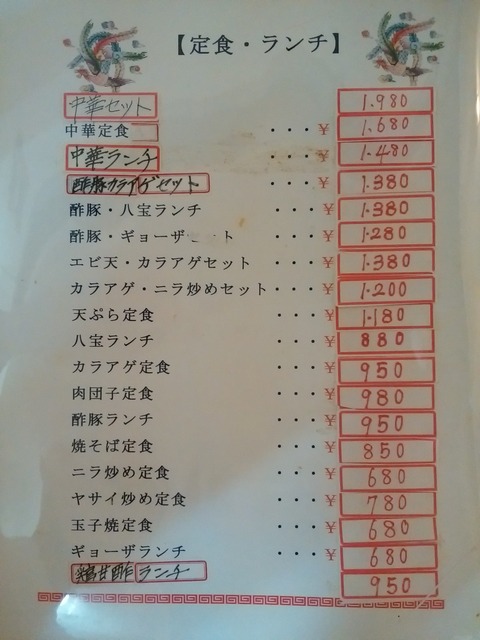 【定食・ランチ】
中華セット 1.980
中華定食 ・・・¥ 1.680
中華ランチ ・・・¥ 1.480
酢豚カラアゲセット ・・・¥ 1.380
酢豚・八宝ランチ ・・・¥ 1.380
酢豚・ギョーザ ト ・・・¥ 1.280
エビ天・カラアゲセット ・・・¥ 1.380
カラアゲ・ニラ炒めセット・・・¥ 1.200
天ぷら定食 ・・・¥ 1.180
八宝ランチ ・・・¥ 880
カラアゲ定食 ・・・¥ 950
肉団子定食 ・・・¥ 980
酢豚ランチ ・・・¥ 950
焼そば定食 ・・・¥ 850
ニラ炒め定食 ・・・¥ 680
ヤサイ炒め定食 ・・・¥ 780
玉子焼定食 ・・・¥ 680
ギョーザランチ ・・・¥ 680
鶏甘酢ランチ 950